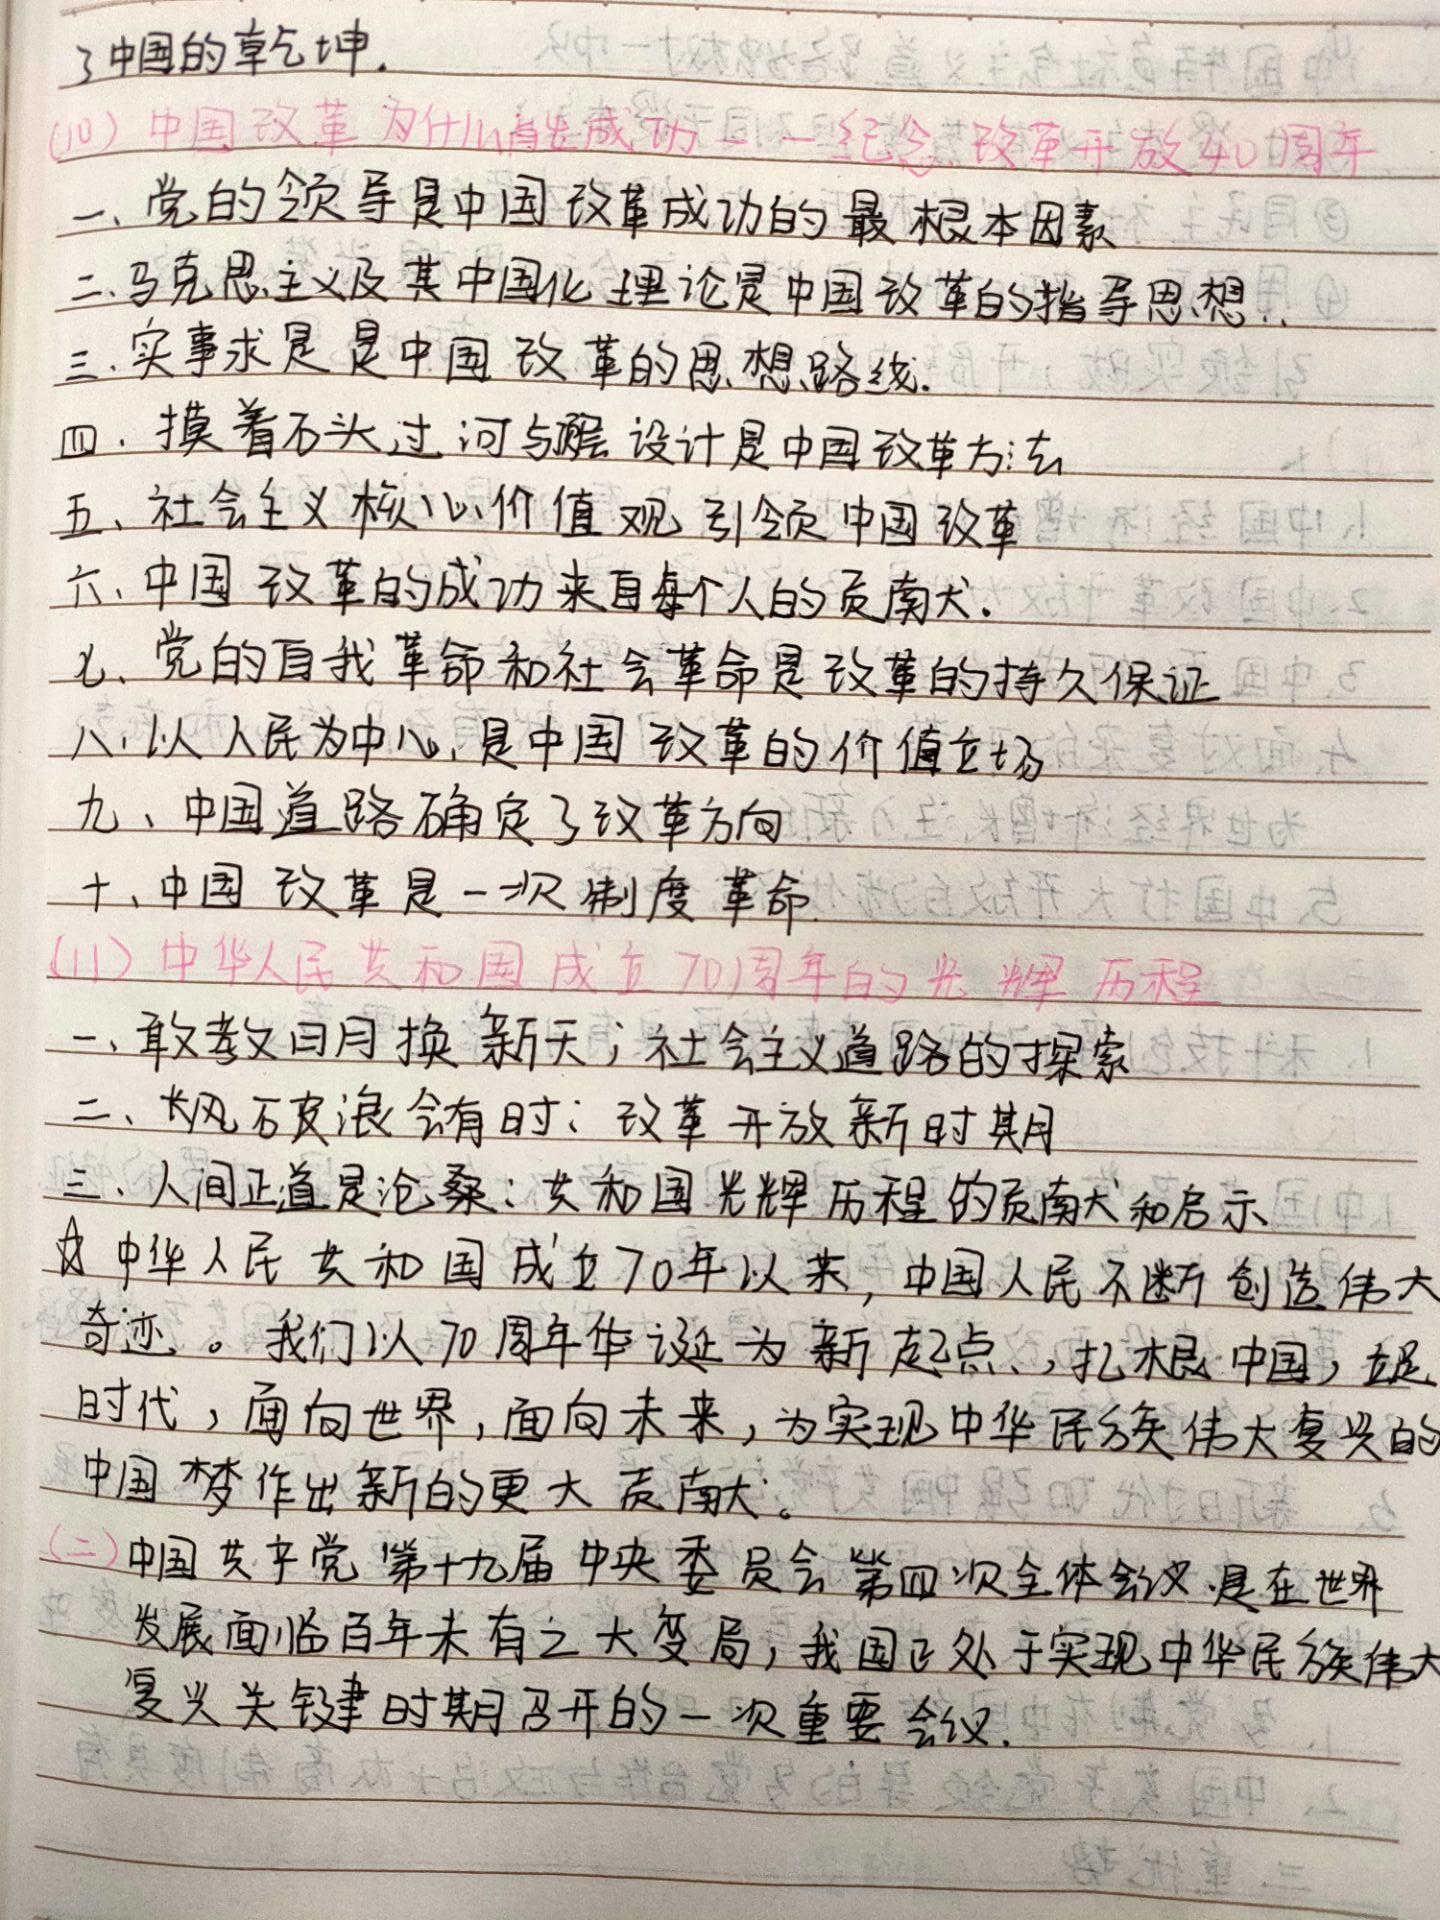 了中国的乾坤.
(10) 中国改革为什么能成功——纪念改革开放40周年
一、党的领导是中国改革成功的最根本因素
二.马克思主义及其中国化理论是中国改革的指导思想.
三.实事求是是中国改革的思想路线.
四.摸着石头过河与顶层设计是中国改革方法
五、社会主义核心价值观引领中国改革
六、中国改革的成功来自每个人的贡献.
七、党的自我革命和社会革命是改革的持久保证
八、以人民为中心,是中国改革的价值立场
九、中国道路确定了改革方向
十、中国改革是一次制度革命
(11) 中华人民共和国成立70周年的光辉历程
一、敢教日月换新天;社会主义道路的探索
二、长风破浪会有时:改革开放新时期
三、人间正道是沧桑:共和国光辉历程的贡献和启示
☆中华人民共和国成立70年以来,中国人民不断创造伟大
奇迹。我们以70周年华诞为新起点,扎根中国,立足
时代,面向世界,面向未来,为实现中华民族伟大复兴的
中国梦作出新的更大贡献。
(二)中国共产党第十九届中央委员会第四次全体会议.是在世界
发展面临百年未有之大变局,我国正处于实现中华民族伟大
复兴关键时期召开的一次重要会议.